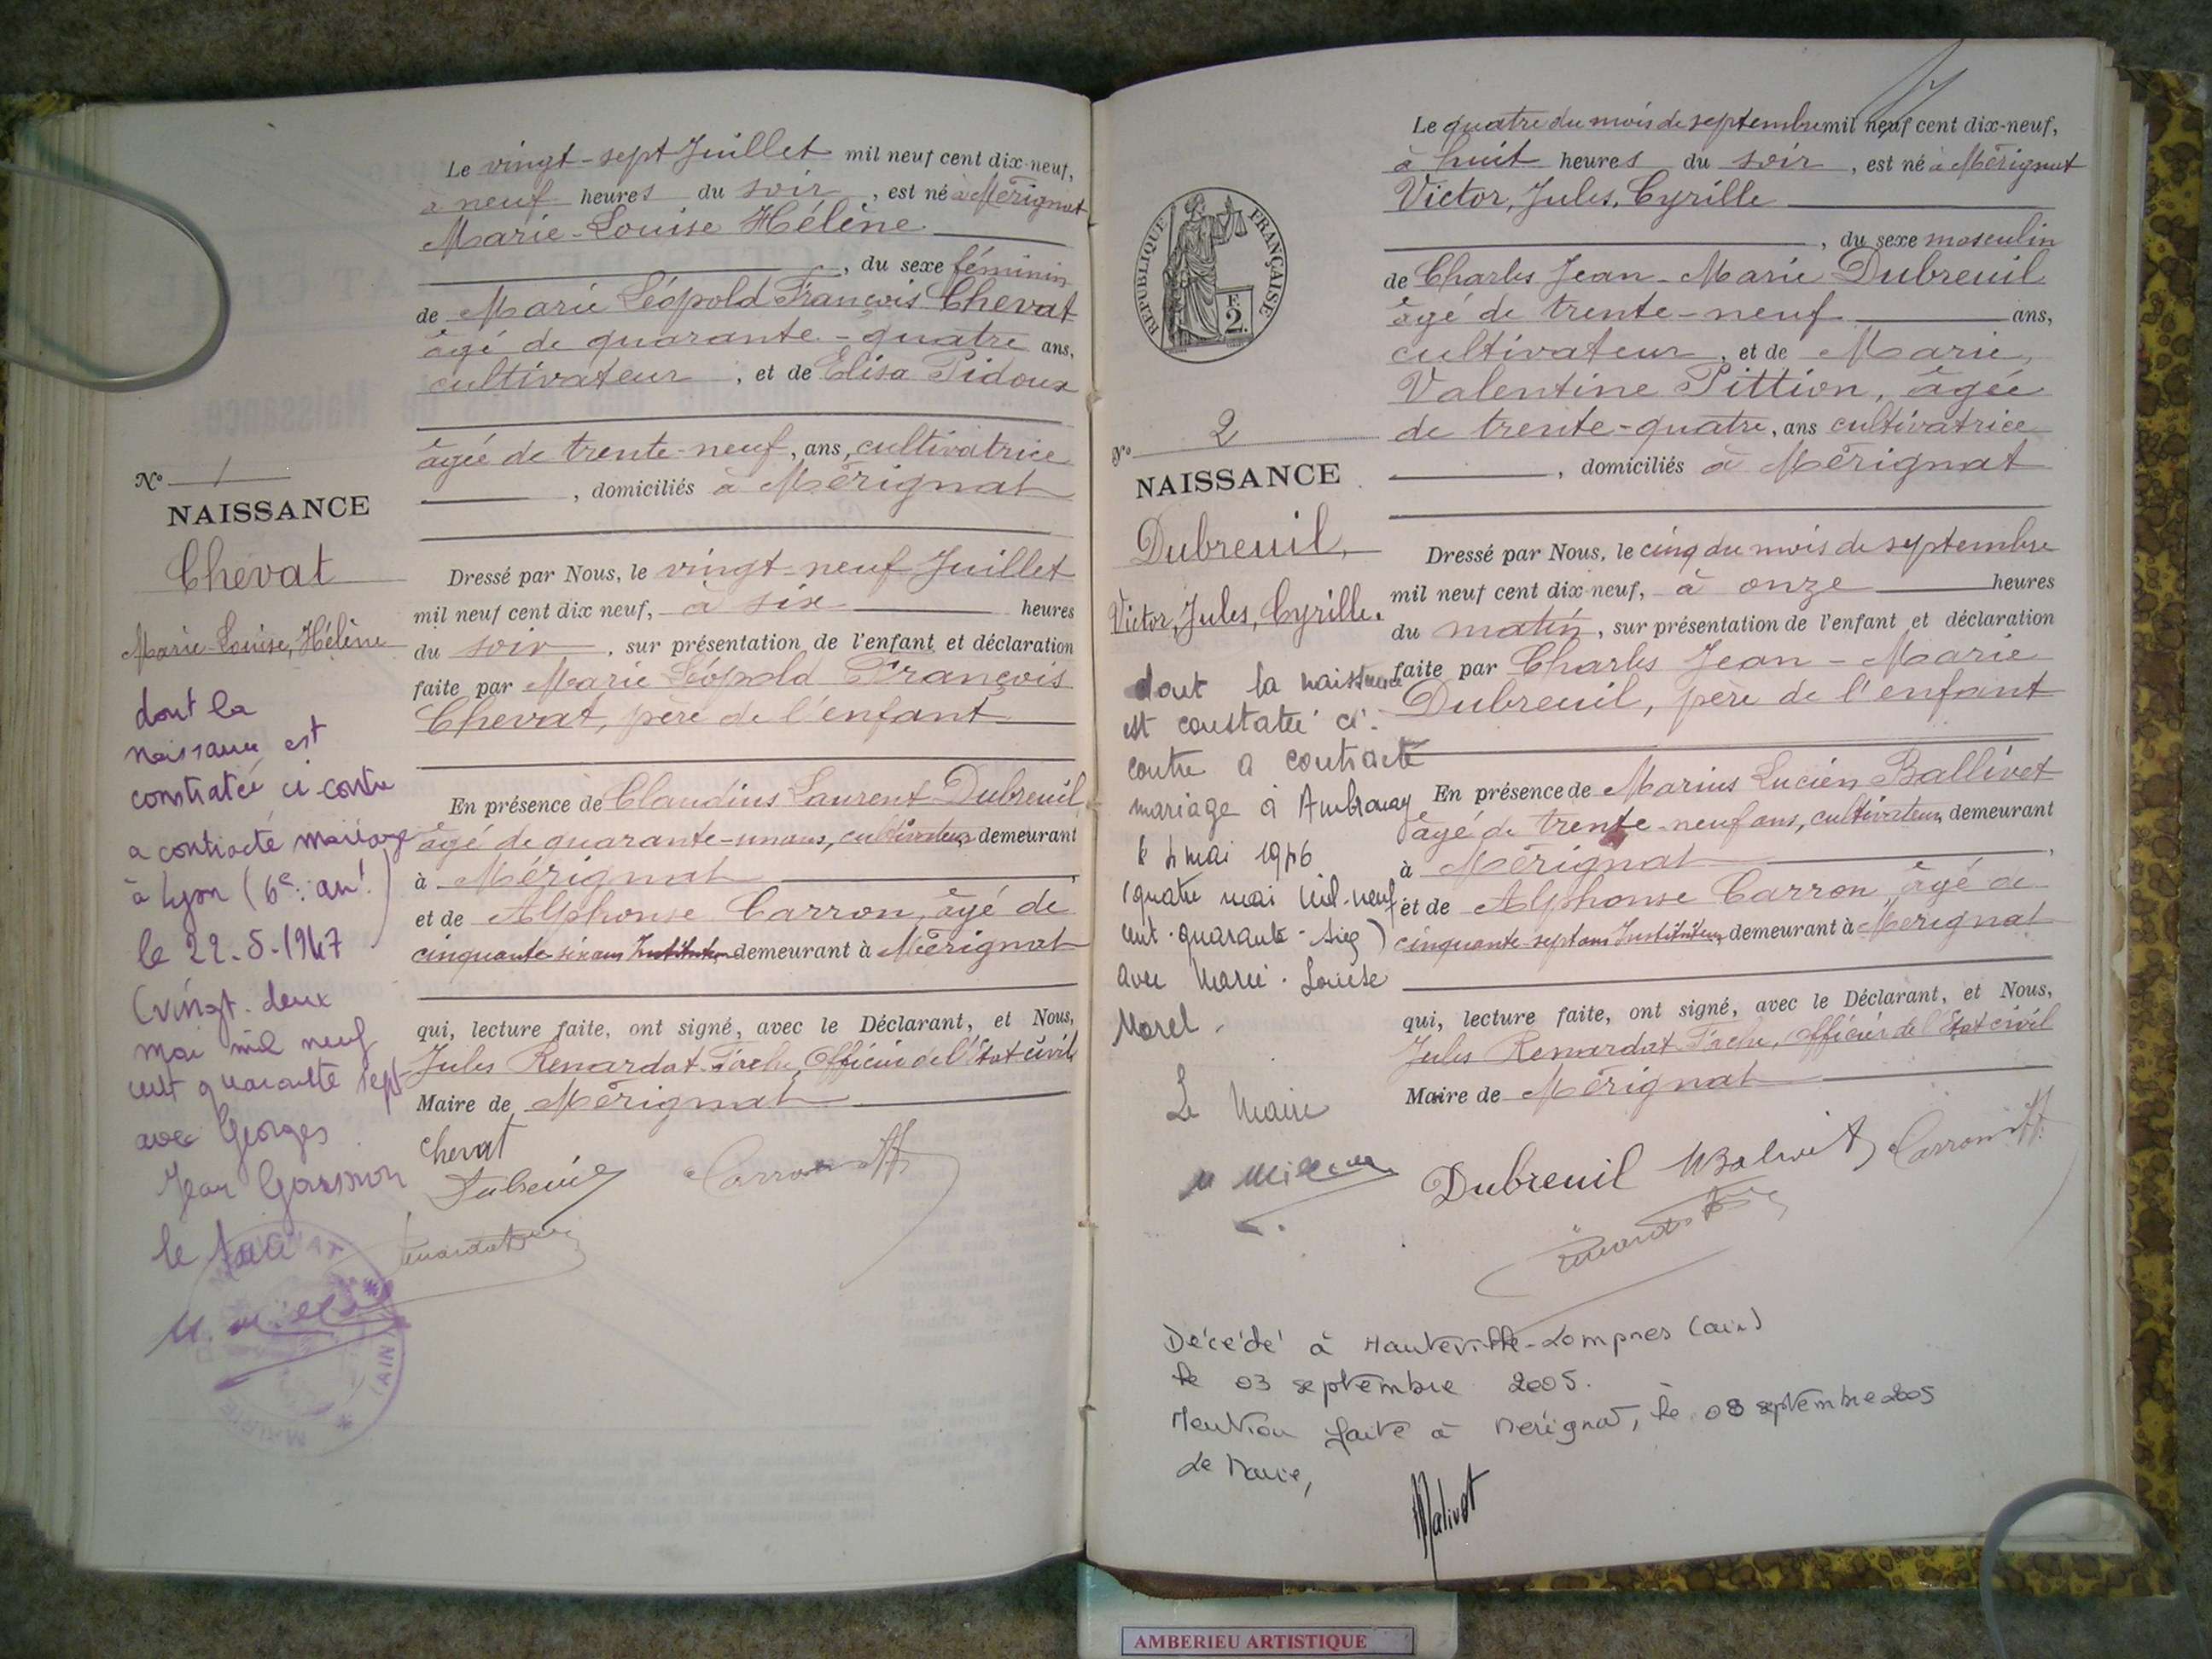 Le vingt-sept Juillet mil neuf cent dix-neuf,
à neuf heures du soir, est né à Mérignat
Marie-Louise Hélène
, du sexe féminin
de Marie Léopold François Chevat
âgé de quarante-quatre ans,
cultivateur, et de Elisa Pidoux
âgée de trente-neuf, ans, cultivatrice
, domiciliés à Mérignat
Dressé par Nous, le vingt-neuf Juillet
mil neuf cent dix neuf, à six heures
du soir, sur présentation de l'enfant et déclaration
faite par Marie Léopold François
Chevat, père de l'enfant
En présence de Claudius Laurent Dubreuil
âgé de quarante-un ans, cultivateur, demeurant
à Mérignat,
et de Alphonse Carron, âgé de
cinquante-six ans Instituteur demeurant à Mérignat
qui, lecture faite, ont signé, avec le Déclarant, et Nous,
Jules Renardat-Fache, Officier de l'Etat civil
Maire de Mérignat
Chevat
Dubreuil Carron
Renardat
N° 1
NAISSANCE
Chevat
Marie-Louise, Hélène
dont la
naissance est
constatée ci-contre
a contracté mariage
à Lyon (6e: art)
le 22-5-1947
(vingt-deux
mai mil neuf
cent quarante sept
avec Georges
Jean
le
MAIRIE
(AIN)
Le quatre du mois de septembre mil neuf cent dix-neuf,
à huit heures du soir, est né à Mérignat
Victor, Jules, Cyrille
, du sexe masculin
de Charles Jean-Marie Dubreuil
âgé de trente-neuf ans,
cultivateur, et de Marie,
Valentine Pittion, âgée
de trente-quatre, ans cultivatrice
, domiciliés à Mérignat
Dressé par Nous, le cinq du mois de septembre
mil neuf cent dix-neuf, à onze heures
du matin, sur présentation de l'enfant et déclaration
faite par Charles Jean-Marie
Dubreuil, père de l'enfant
En présence de Marius Lucien Ballivet
âgé de trente-neuf ans, cultivateur, demeurant
à Mérignat,
et de Alphonse Carron, âgé de
cinquante-sept ans Instituteur, demeurant à Mérignat
qui, lecture faite, ont signé, avec le Déclarant, et Nous,
Jules Renardat-Fache, Officier de l'Etat civil
Maire de Mérignat
Dubreuil Carron
RÉPUBLIQUE FRANÇAISE
F.
2.
N° 2
NAISSANCE
Dubreuil,
Victor, Jules, Cyrille.
dont la naissance
est constatée ci-
contre a contracté
mariage à Ambronay
le 4 mai 1946
(quatre mai mil-neuf
cent-quarante-six)
avec Marie-Louise
Morel.
Le Maire
Décédé à Hauteville-Lompnes (ain)
le 03 septembre 2005.
Mention faite à Mérignat, le 08 septembre 2005
Le Maire,
Malivot
AMBERIEU ARTISTIQUE